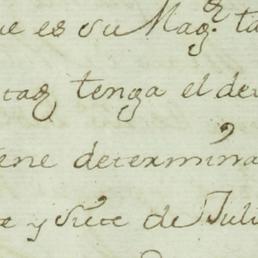 ue es su Mag.^d ta
tag tenga el de
ene determina
e y siete de Juli